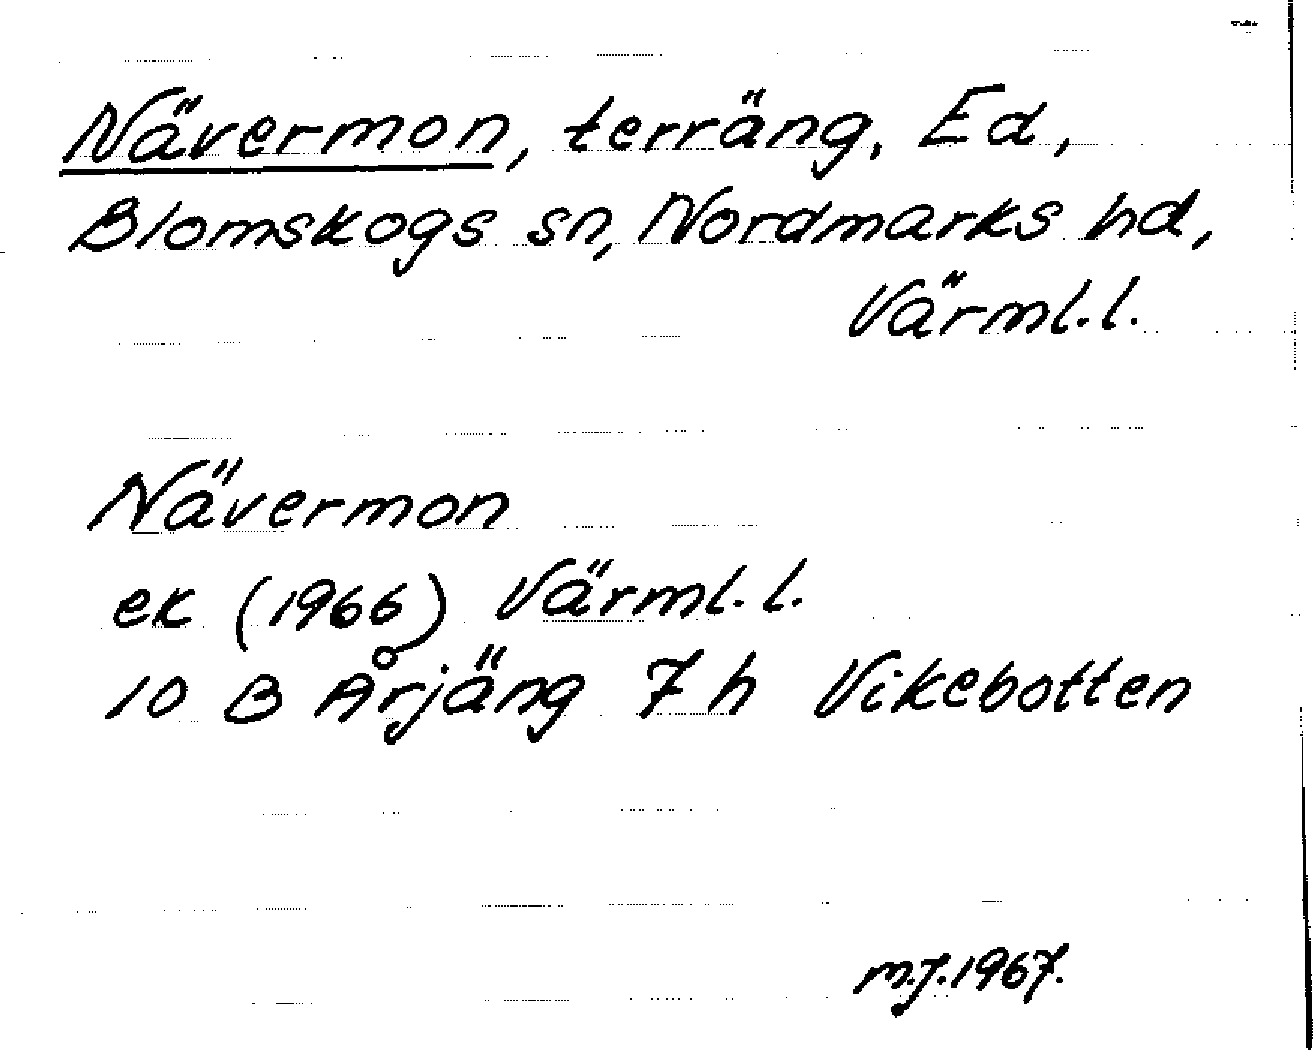 Nävermon, terräng, Ed,
Blomskogs sn, Nordmarks hd,
Värml. l.
Nävermon
ek (1966) Värml. l.
10 B Årjäng 7 h Vikebotten
m.j. 1967.